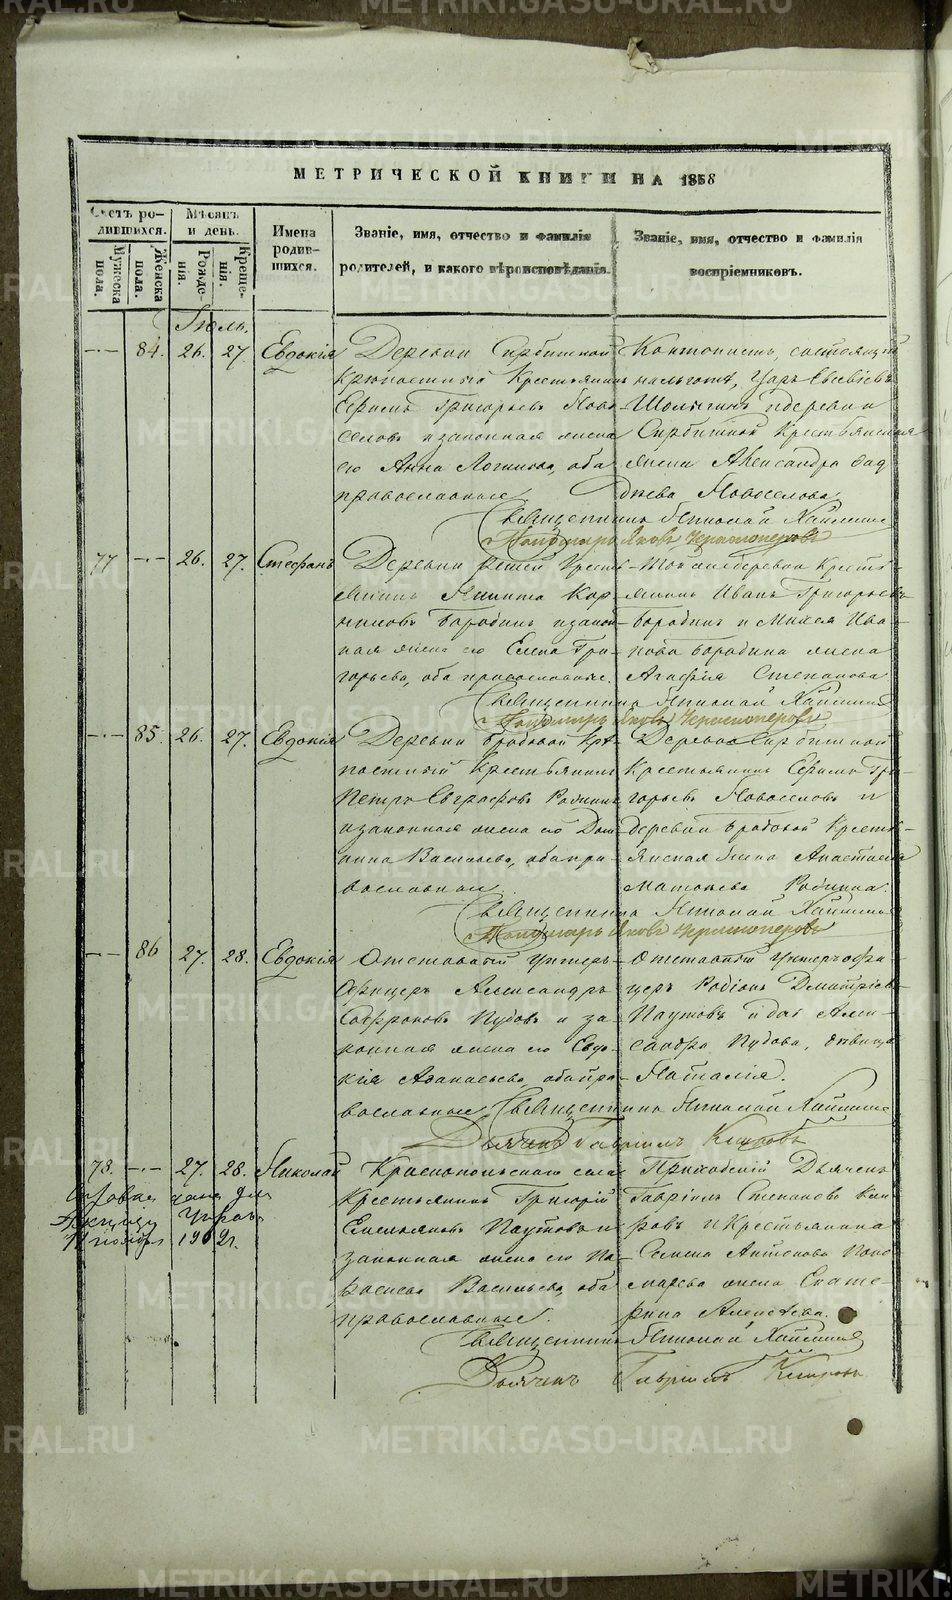 МЕТРИЧЕСКОЙ КНИГИ НА 1858
Счетъ ро-
дившихся.
Мѣсяцъ
и день.
Имена
родив-
шихся.
Званіе, имя, отчество и фамилія
родителей, и какого вѣроисповѣданія.
Званіе, имя, отчество и фамилія
воспріемниковъ.
Мужеска
пола.
Женска
пола.
Рожде-
нія.
Креще-
нія.
Іюль.
84. 26. 27. Евдокія
Деревни Сербишной
крѣпостный Крестьянинъ
Ефимъ Григорьевъ Ново-
селовъ и законная жена
его Анна Логинова, оба
православные
Кантонистъ, состоящій
Шолыгинъ и деревни
Сербишной Крестьянская
жена Александра
Новоселова
Священникъ Николай
Пономарь Яковъ Черноперовъ
77 26. 27. Стефанъ
Деревни Кресть-
янинъ Никита Кор-
ниловъ Бородинъ и закон-
ная жена его Елена Гри-
горьева, оба православные.
Той же деревни Кресть-
янинъ Иванъ Григорьевъ
Бородинъ и Михея Ива-
нова Бородина жена
Агафія Степанова
Священникъ Николай
Пономарь Яковъ Черноперовъ
85. 26. 27. Евдокія
Деревни Бродовой Крѣ-
постный Крестьянинъ
Петръ Евграфовъ Родинъ
и законная жена его Дом-
нина Васильева, оба пра-
вославные
Деревни Сербишной
Крестьянинъ Ефимъ Гри-
горьевъ Новоселовъ и
деревни Бродовой Кресть-
янская жена Анастасія
Родина
Священникъ Николай
Пономарь Яковъ Черноперовъ
86 27. 28. Евдокія
Отставный Унтеръ-
Офицеръ Александръ
Софроновъ Пудовъ и за-
конная жена его Евдо-
кія Афанасьева, оба пра-
вославные
Отставный Унтеръ-офи-
церъ Родіонъ Дмитріевъ
Паутовъ и дочь Алек-
сандра Пудова, дѣвица
Наталія.
Священникъ Николай
Дьячекъ Гавріилъ Кипровъ
78. 27. 28. Николай
Краснопольскаго села
Крестьянинъ Григорій
Емельяновъ Паутовъ и
законная жена его Па-
раскева Васильева, оба
православные.
Приходскій Дьячекъ
Гавріилъ Степановъ Кип-
ровъ и Крестьянина
Семена Антонова Поно-
марева жена Екате-
рина Алексѣева.
Священникъ Николай
Дьячекъ Гавріилъ Кипровъ
METRIKI.GASO-URAL.RU